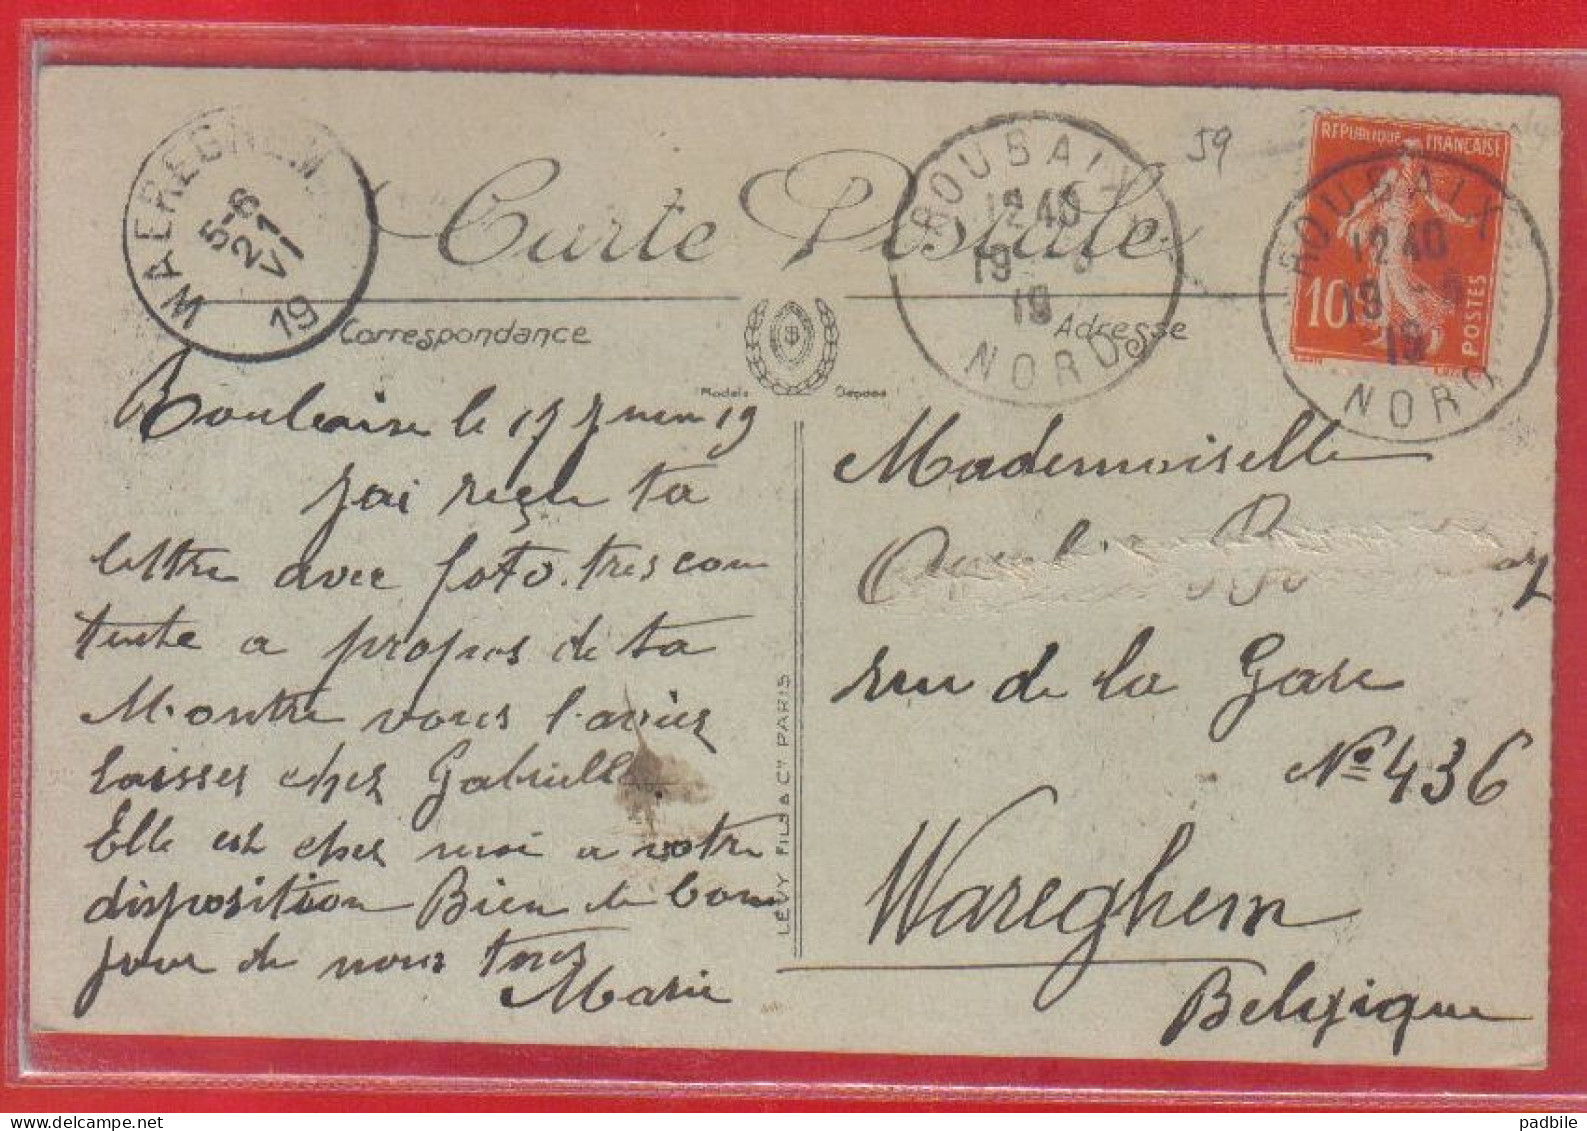 WAEREGHEM
5-6
21
VI
19
Carte Postale
ROUBAIX
12 40
19 - 6
19
NORD
59
REPUBLIQUE FRANCAISE
10
POSTES
ROUBAIX
12 40
19 - 6
19
NORD
Correspondance
Adresse
Modele Depose
Roubaix le 17 Juin 19
J'ai reçu ta
lettre avec foto. tres con
tente a propos de ta
Montre vous l'aviez
laisser chez Gabrielle.
Elle est chez moi a votre
disposition Bien le bon
jour de nous tres
Marie
LÉVY FILS & Cie PARIS
Mademoiselle
rue de la Gare
No 436
Wareghem
Belgique
padbile